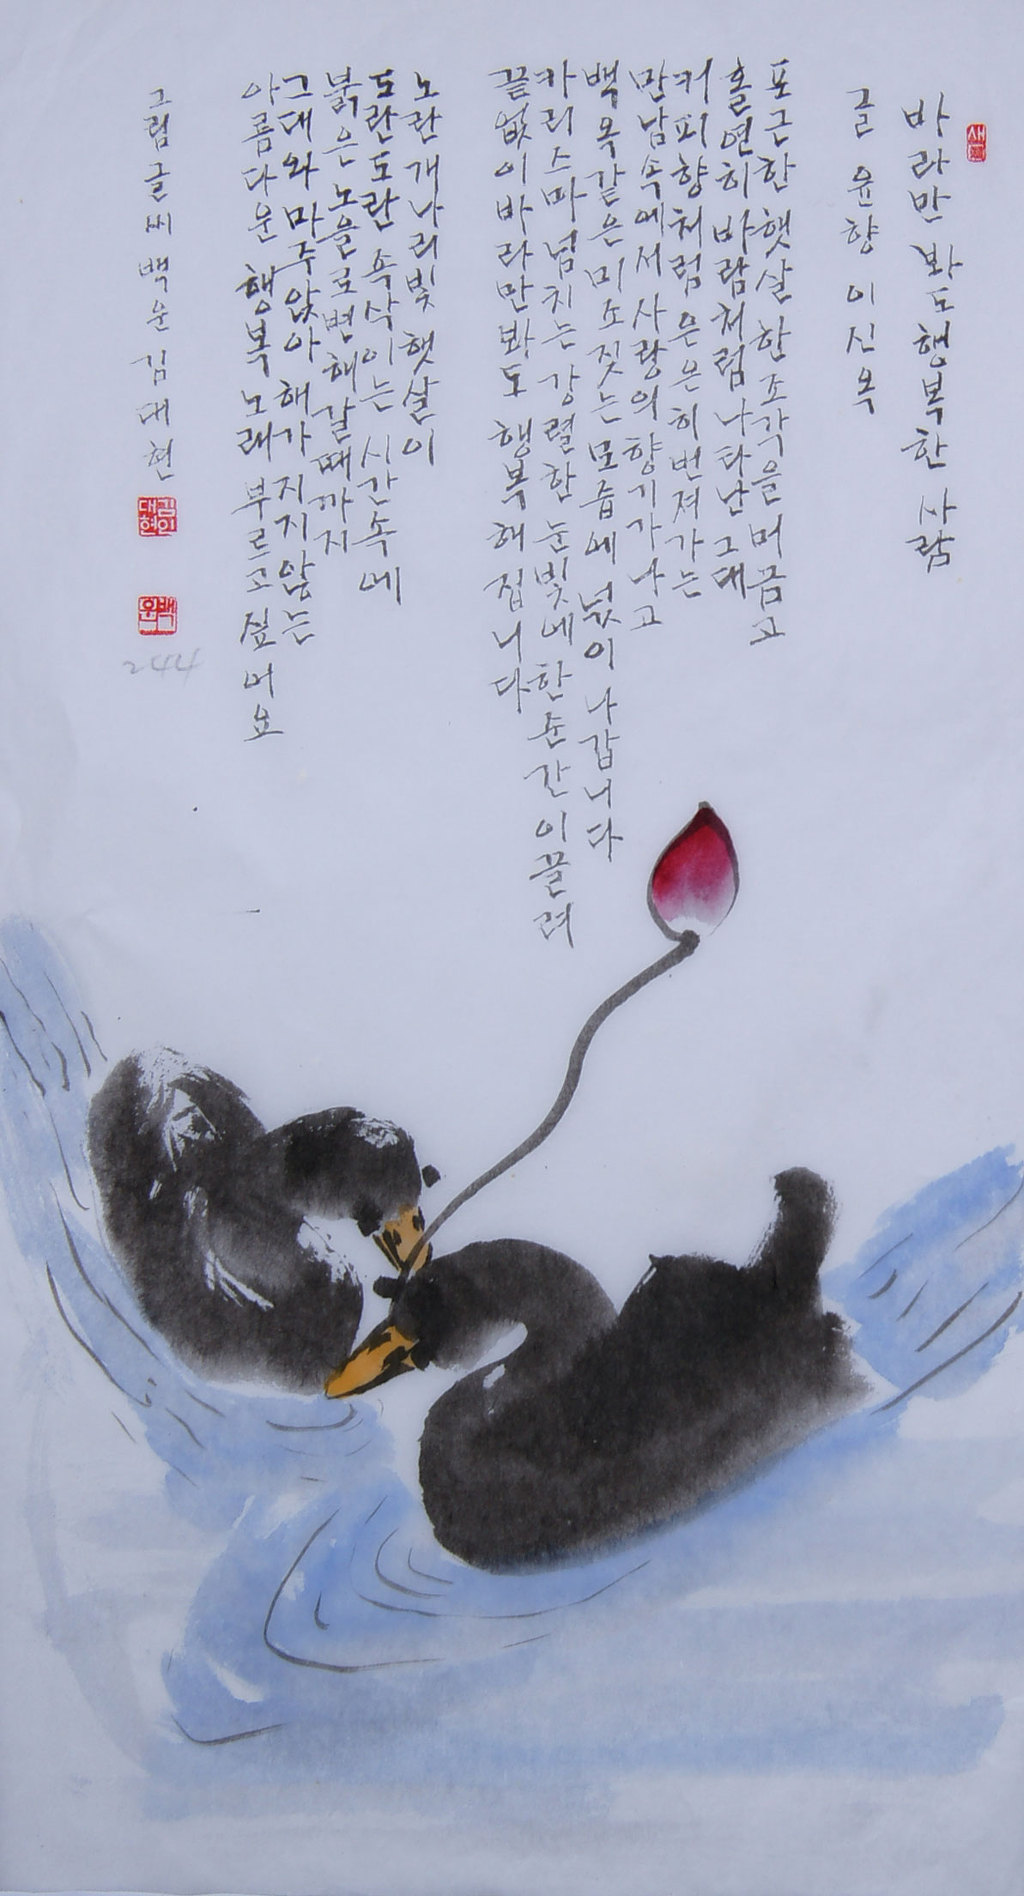 바라만 봐도 행복한 사람
글 윤향 이신옥
포근한 햇살 한 조각을 머금고
홀연히 바람처럼 나타난 그대
커피향처럼 은은히 번져가는
만남속에서 사랑의 향기가 나고
백옥같은 미소짓는 모습에 넋이 나갑니다
카리스마 넘치는 강렬한 눈빛에 한순간 이끌려
끝없이 바라만 봐도 행복해집니다
노란 개나리빛 햇살이
도란도란 속삭이는 시간속에
붉은 노을로 변해갈때까지
그대와 마주앉아 해가 지지않는
아름다운 행복 노래 부르고 싶어요
그림 글씨 백운 김대현
김인대현
백운
244